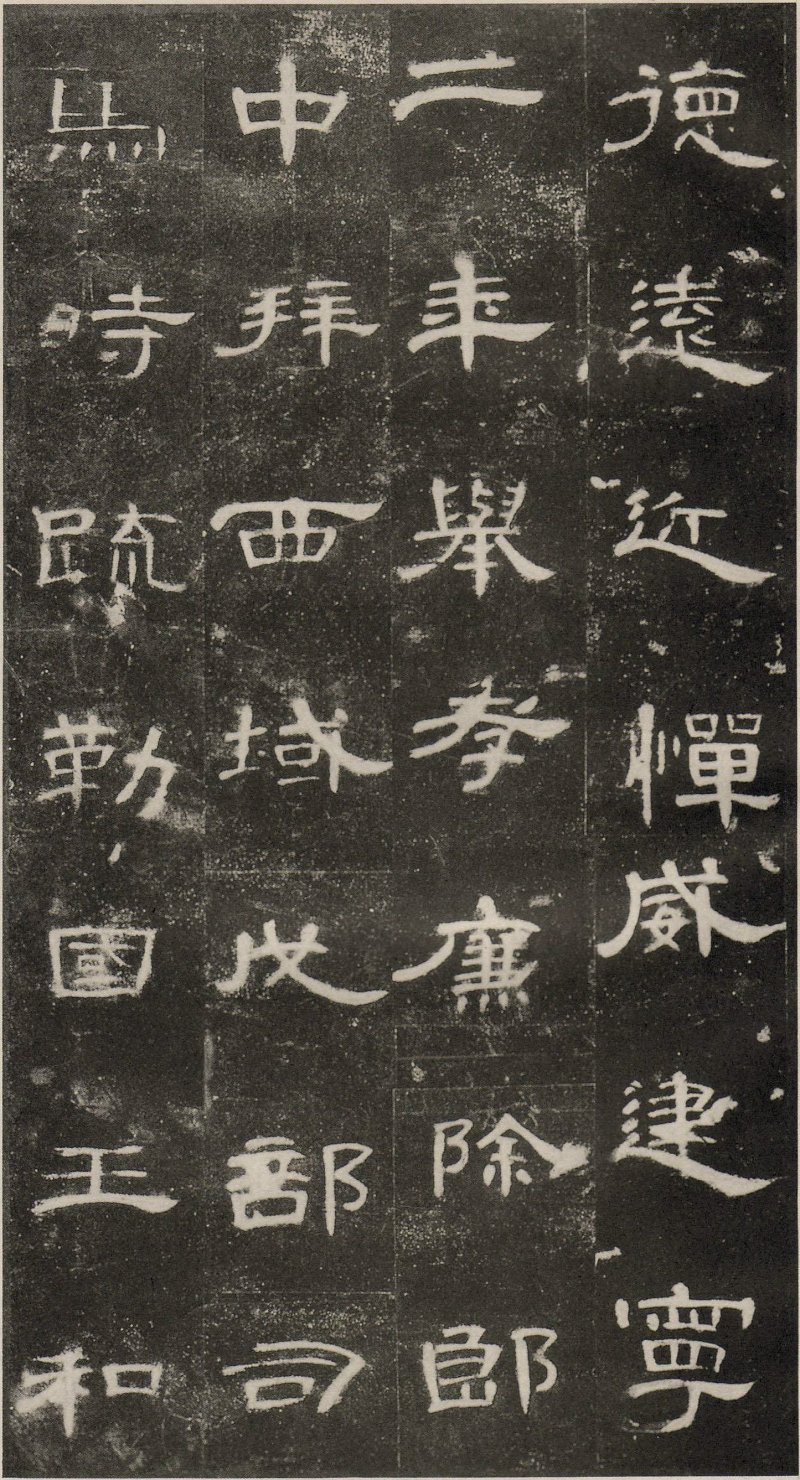 德遠近憚威建寧
二年舉孝廉除郎
中拜西域戊部司
馬時疏勒國王和